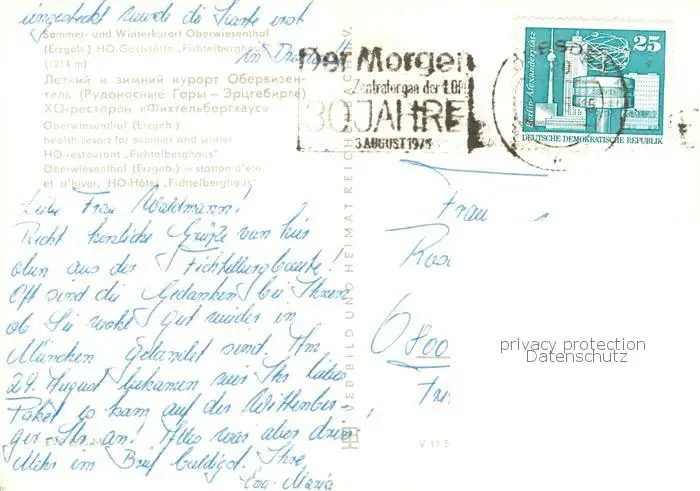 eingesteckt wurde die Karte erst
in Dresden !!
Sommer- und Winterkurort Oberwiesenthal
(Erzgeb.) HO-Gaststätte „Fichtelberghaus"
(1214 m)
Летний и зимний курорт Обервизен-
таль (Рудоносные Горы – Эрцгебирге)
ХО-ресторан «Фихтельбергхаус»
Oberwiesenthal (Erzgeb.)
health resort for summer and winter
HO-restaurant „Fichtelberghaus"
Oberwiesenthal (Erzgeb.) – station d'été
et d'hiver. HO-Hôtel „Fichtelberghaus"
Liebe Frau Waldmann!
Recht herzliche Grüße von hier
oben aus der Fichtelbergbaude!
Oft sind die Gedanken bei Ihnen
ob Sie wohl gut wieder in
München gelandet sind. Am
29. August bekamen wir Ihr liebes
Paket es kam auf der Wittenber-
ger Str. an! Alles war aber drin!
Mehr im Brief baldigst. Ihre
Eva-Maria
VEB BILD UND HEIMAT REICHENBACH I. V.
V 11 5
Der Morgen
Zentralorgan der LDPD
30 JAHRE
3. AUGUST 1975
25
Berlin, Alexanderplatz
DEUTSCHE DEMOKRATISCHE REPUBLIK
Frau
Ros
800
privacy protection
Datenschutz